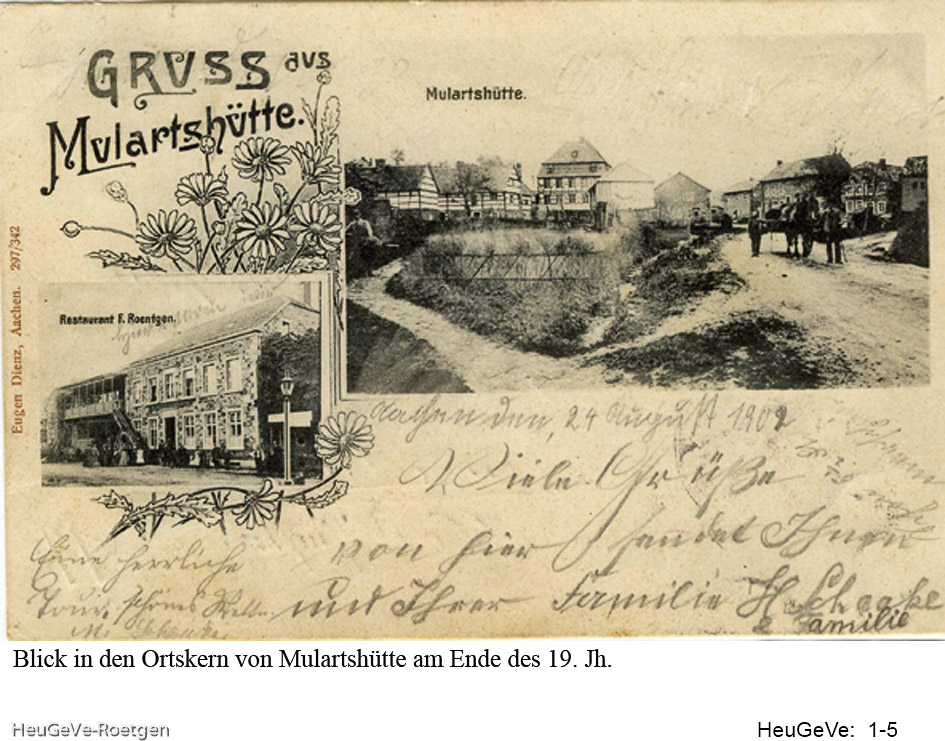 GRUSS aus
Mulartshütte.
Mulartshütte.
Eugen Dienz, Aachen. 297/342
Restaurant F. Roentgen.
Aachen den, 24 August 1902
Viele Grüße
von hier sendet Ihnen
und Ihrer Familie H. Schaake
& Familie
Eine herrliche
Tour, schönes
Blick in den Ortskern von Mulartshütte am Ende des 19. Jh.
HeuGeVe-Roetgen
HeuGeVe: 1-5